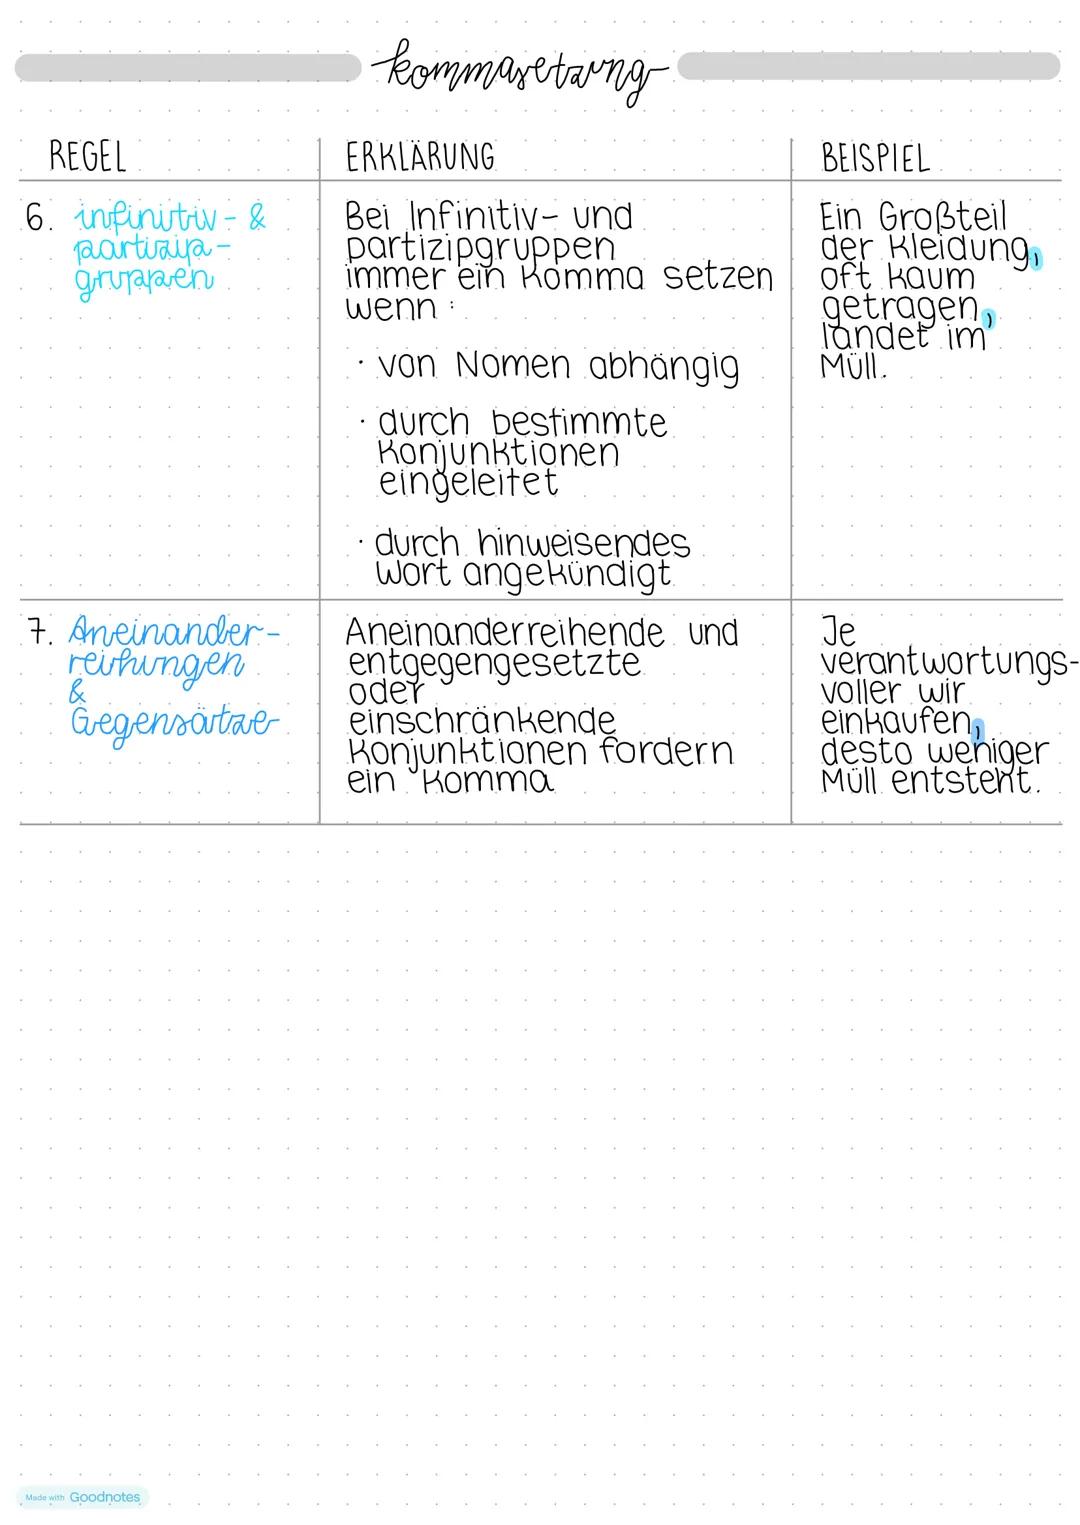 kommasetzung
REGEL
ERKLÄRUNG
BEISPIEL
6. infinitiv- &
partizip-
gruppen
Bei Infinitiv- und
partizipgruppen
immer ein Komma setzen
wenn :
· von Nomen abhängig
· durch bestimmte
Konjunktionen
eingeleitet
· durch hinweisendes
Wort angekündigt
Ein Großteil
der Kleidung,
oft kaum
getragen,
landet im
Müll.
7. Aneinander-
reihungen
&
Gegensätze
Aneinanderreihende und
entgegengesetzte
oder
einschränkende
Konjunktionen fordern
ein Komma
Je
verantwortungs-
voller wir
einkaufen,
desto weniger
Müll entsteht.
Made with Goodnotes